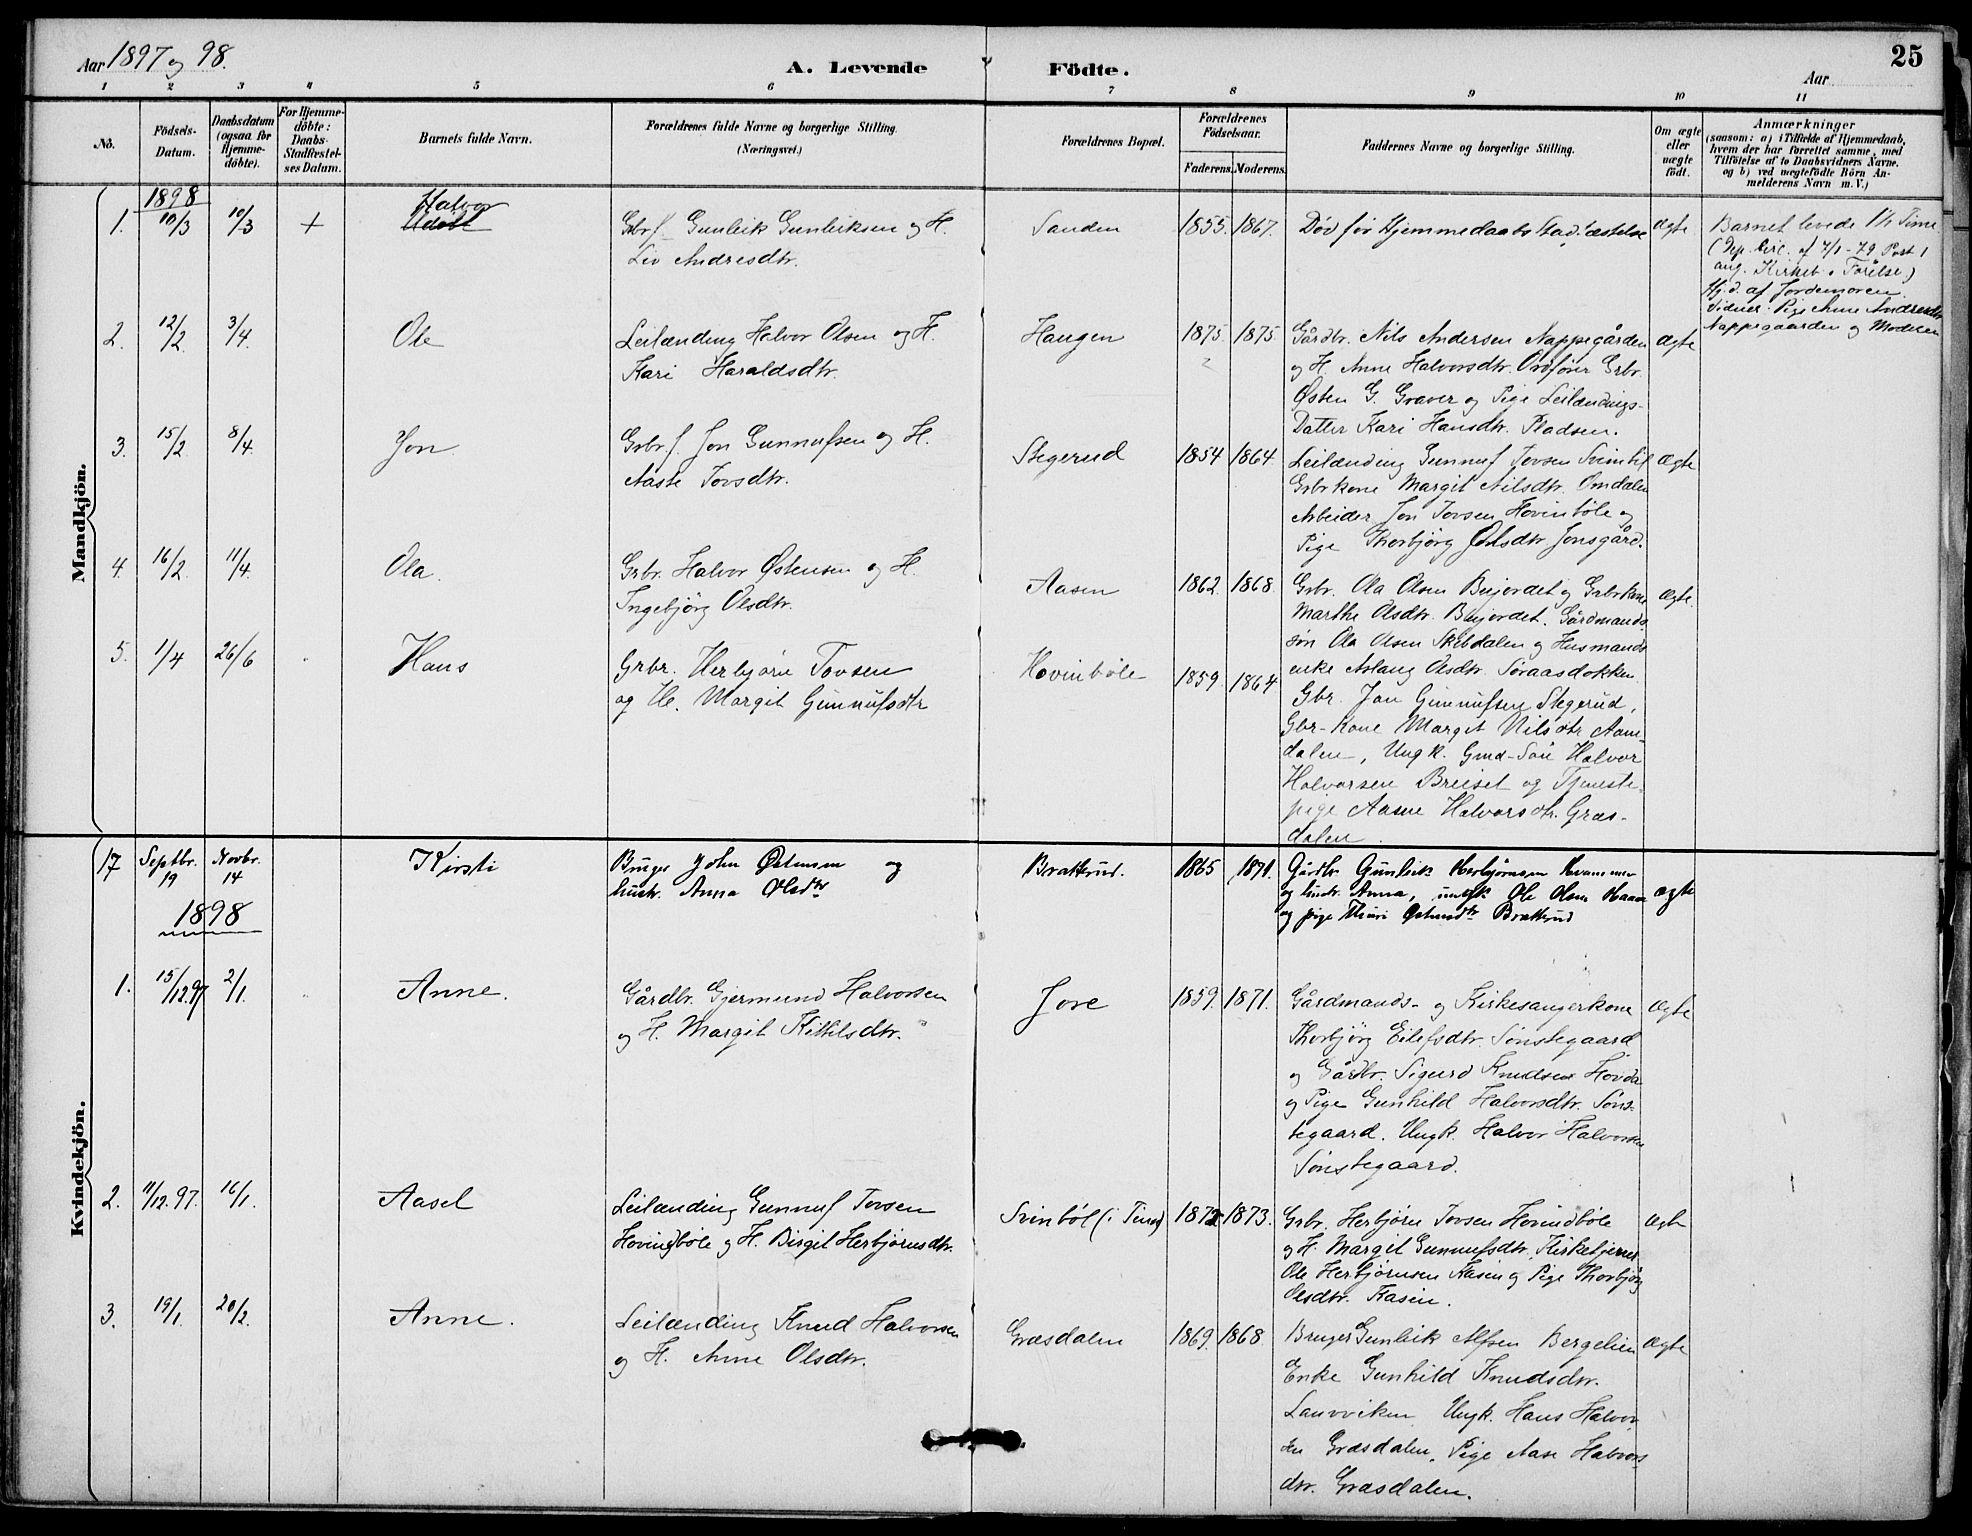 Aar 1897 og 98.
A. Levende Födte.
Aar
25
1 2 3 4 5 6 7 8 9 10 11
No.
Födsels-Datum.
Daabsdatum (ogsaa for Hjemme-döbte).
For Hjemme-döbte: Daabs-Stadfæstel-ses Datum.
Barnets fulde Navn.
Forældrenes fulde Navne og borgerlige Stilling.
(Næringsvei.)
Forældrenes Bopæl.
Forældrenes Födselsaar.
Faderens. Moderens.
Faddernes Navne og borgerlige Stilling.
Om ægte eller uægte födt.
Anmærkninger
(saasom: a) i Tilfælde af Hjemmedaab,
hvem der har forrettet samme, med
Tilföielse af to Daabsvidners Navne.
og b) ved uægtefödte Börn An-
melderens Navn m. V.)
Mandkjön.
1898
1. 10/3 10/3 + Halvor
Udöbt
Grbrf. Gunleik Gunleiksen og H.
Liv Andresdtr.
Sanden 1855. 1867.
Död før Hjemmedaabs Stadfæstelse
Ægte
Barnet levede 1½ Time
(Dep. Circ. af 7/1-79 Post 1
ang. Kirkeb. Förelse.)
Hj.d. af Jordemoren.
Vidner: Pige Anne Andresdtr
Nappegaarden og Moderen
2. 12/2 3/4. Ole
Leilænding Halvor Olsen og H.
Kari Haraldsdtr.
Haugen 1875. 1875.
Gårdbr. Nils Andersen Nappegården
og H. Anne Halvorsdtr. Ordfører Grbr.
Østen G. Graver og Pige Leilændings-
Datter Kari Hansdtr. Pladsen.
Ægte
3. 15/2 8/4. Jon
Grbrf. Jon Gunnufsen og H.
Aaste Tovsdtr.
Stegerud 1854 1864.
Leilænding Gunnuf Tovsen Svinböl
Grbrkone Margit Nilsdtr. Omdalen
Arbeider Jon Tovsen Hovinböle og
Pige Thorbjörg Olsdtr Jonsgård.
Ægte
4. 16/2. 11/4. Ola.
Grbr. Halvor Østensen og H.
Ingebjörg Olsdtr.
Aasen 1862. 1868.
Grbr. Ola Olsen Bujordet og Grbrkone
Marthe Olsdtr. Bujordet. Gårdmands-
sön Ola Olsen Skibdalen og Husmands
enke Aslaug Olsdtr. Søraasdokken.
Ægte.
5. 1/4 26/6 Hans
Grbr. Herbjörn Tovsen
og H. Margit Gunnufsdtr
Hovinböle 1859. 1864
Gbr. Jon Gunnufsen Stegerud,
Gbr-kone Margit Nilsdtr Aam-
dalen, Ungk. Gmd-Sön Halvor
Halvorsen Breiset og Tjeneste-
pige Aasne Halvorsdtr. Græs-
dalen.
Kvindekjön.
17 Septbr. 19 Novbr. 14 Kirsti
Bruger John Østensen og
hustr. Anna Olsdtr
Brattrud. 1865 1871.
Gårdbr. Gunleik Herbjörnsen Kvammen
og hustr. Anna, ungk. Ole Olsen Haaen
og pige Thuri Østensdtr Brattrud
ægte
1898
1. 15/12.97 2/1. Anne.
Gårdbr. Gjermund Halvorsen
og H. Margit Kittilsdtr.
Jore 1859. 1871.
Gårdmands- og Kirkesangerkone
Thorbjörg Eilefsdtr. Sönstegaard
og Gårdbr. Sigurd Knudsen Hovde
og Pige Gunhild Halvorsdtr. Söns-
tegaard. Ungk. Halvor Halvorsen
Sönstegaard.
Ægte
2. 11/12.97. 16/1. Aasel
Leilænding Gunnuf Tovsen
Hovindböle og H. Birgit Herbjörnsdtr.
Svinböl (i Tinn) 1872 1873.
Grbr. Herbjörn Tovsen Hovindböle
og H. Margit Gunnufsdtr. Kirketjener
Ole Herbjörnsen Kasin og Pige Thorbjörg
Olsdtr. Kasin.
Ægte
3. 19/1. 20/2. Anne.
Leilænding Knud Halvorsen
og H. Anne Olsdtr.
Græsdalen 1869. 1868.
Bruger Gunleik Alfsen Bergelien
Enke Gunhild Knudsdtr.
Lauvviken Ungk. Hans Halvor-
sen Græsdalen, Pige Aase Halvors
dtr. Græsdalen.
Ægte